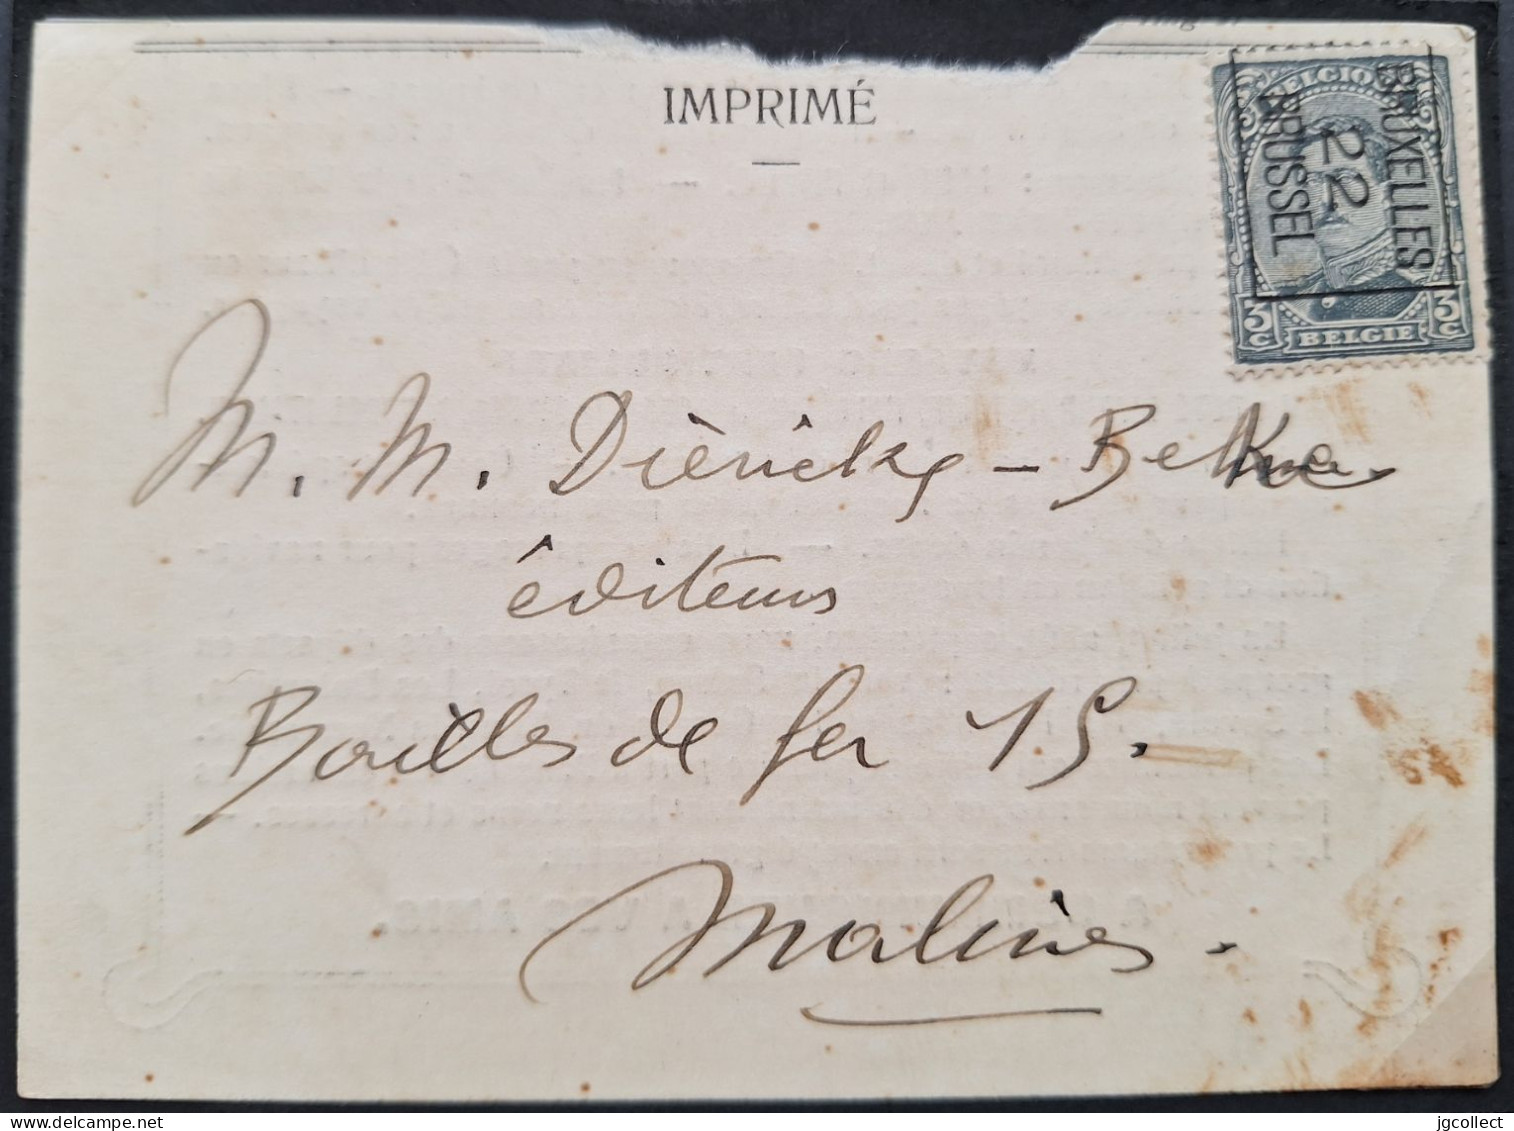 IMPRIMÉ
BELGIQUE
BRUXELLES
22
BRUSSEL
3c BELGIE 3c
M. M. Dièrickx - Beke
éditeurs
Bailles de fer 15.
Malines.
jgcollect